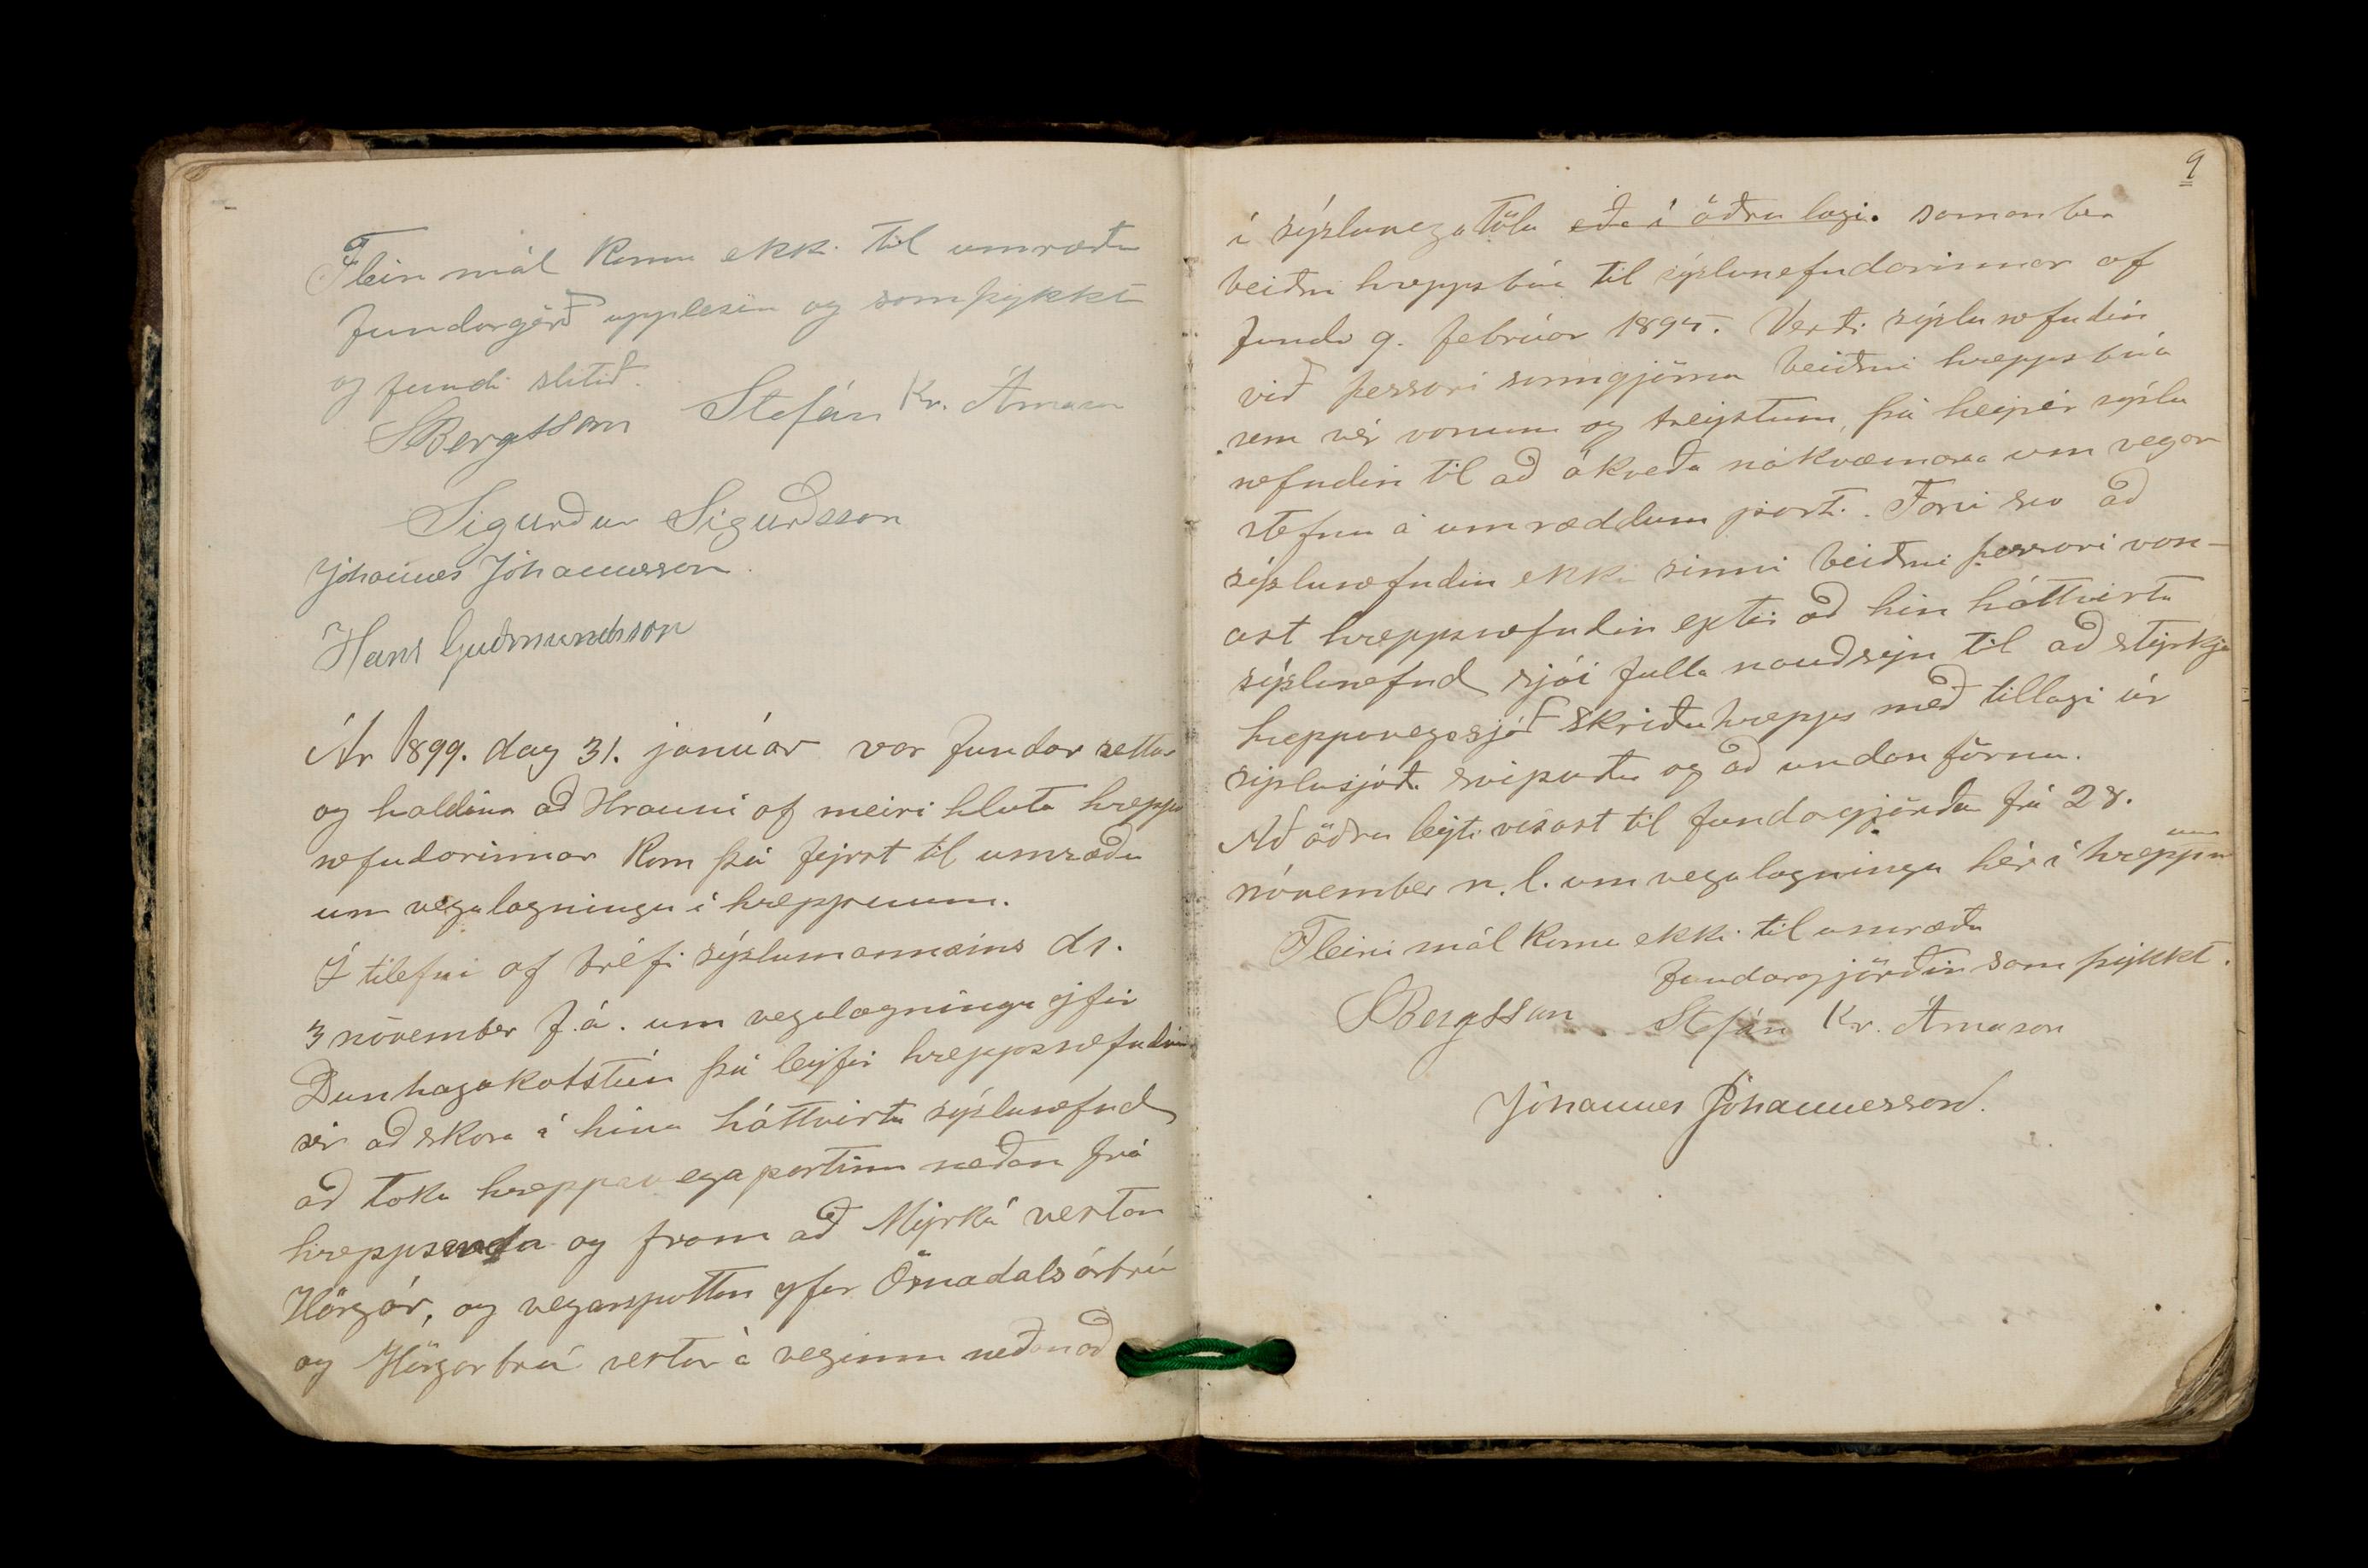 Flein mál komu ekki til umræðu
fundargörð upplesin og samþykkt
og fundi slitið.
SBergsson Stefán Kr. Árnason
Sigurður Sigurðsson
Jóhannes Jóhannesson.
Hans Guðmundsson
Ár 1899. dag 31. janúar var fundar settur
og haldinn að Hrauni af meiri hluta hrepps
nefndarinnar kom þá fyrst til umræðu
um vegalagningu í hreppnum.
Í tilefni af bréfi sýslumannsins ds.
3 nóvember f.á. um vegalagningu yfir
Dunhagakotstún þá leyfir hreppsnefndin
sér að skora á hina háttvirtu sýslunefnd
að taka hreppavegapartinn neðan frá
hreppsenda og fram að Myrká vestan
Hörgár, og vegarspottan yfir Öxnadalsárbrú
og Hörgárbrú vestur á veginn neðan að
9
í sýsluvegatölu eða í öðru lagi. samanber
beiðni hreppsbúa til sýslunefndarinnar af
fundi 9. febrúar 1895. Verði sýslunefndin
við þessari sanngjörnu beiðni hreppsbúa
sem vér vonum og treystum, þá hefir sýslu
nefndin til að ákveða nákvæmara um vegar
stefnu á umræddum parti. Fari svo að
sýslunefndin ekki sinni beiðni þessari von-
ast hreppsnefndin eptir að hin háttvirta
sýslunefnd sjái fulla nauðsyn til að styrkja
hreppavegasjóð Skriðuhrepps með tillagi úr
sýslusjóði svipuðu og að undanförnu.
Að öðru leyti vísast til fundargjörða frá 28.
nóvember n.l. um vegalagningu hér í hreppnum
Fleiri mál komu ekki til umræðu
fundargjörðin samþykkt.
SBergsson Stefán Kr. Árnason
Jóhannes Jóhannesson.